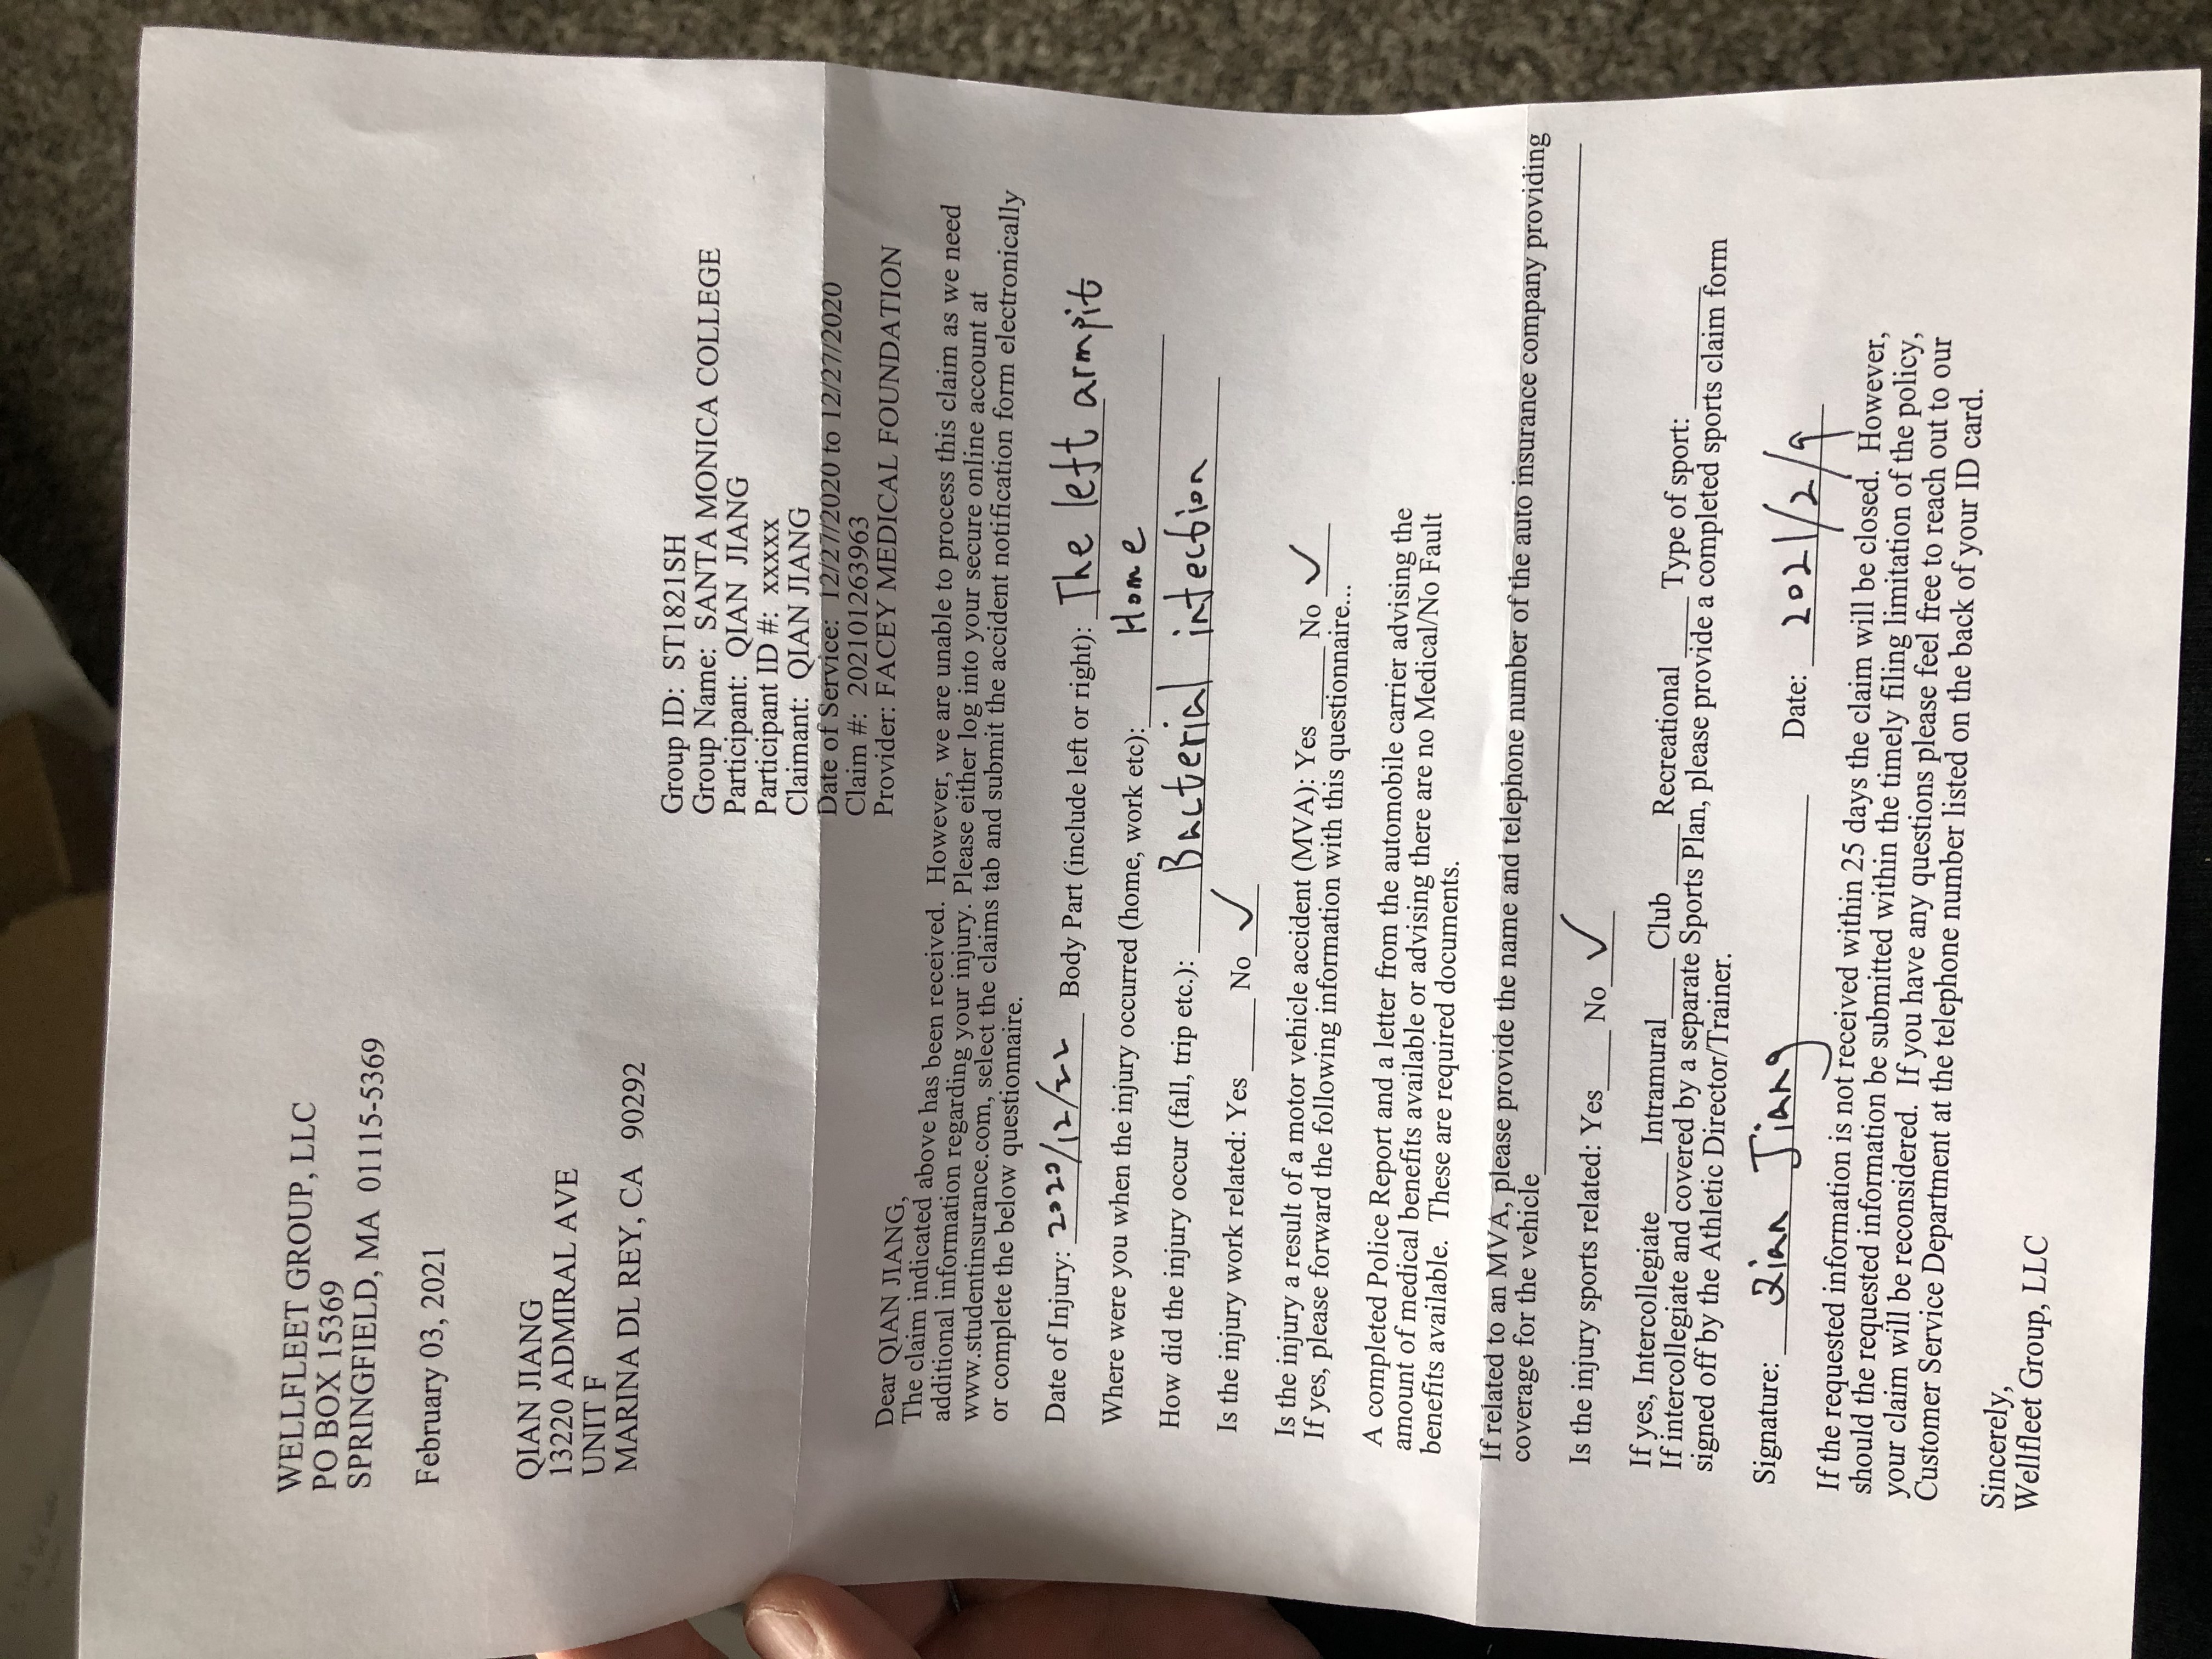 WELLFLEET GROUP, LLC
PO BOX 15369
SPRINGFIELD, MA 01115-5369
February 03, 2021
QIAN JIANG
13220 ADMIRAL AVE
UNIT F
MARINA DL REY, CA 90292
Group ID: ST1821SH
Group Name: SANTA MONICA COLLEGE
Participant: QIAN JIANG
Participant ID #: xxxxx
Claimant: QIAN JIANG
Date of Service: 12/27/2020 to 12/27/2020
Claim #: 202101263963
Provider: FACEY MEDICAL FOUNDATION
Dear QIAN JIANG,
The claim indicated above has been received. However, we are unable to process this claim as we need
additional information regarding your injury. Please either log into your secure online account at
www.studentinsurance.com, select the claims tab and submit the accident notification form electronically
or complete the below questionnaire.
Date of Injury: 2020/12/22 Body Part (include left or right): The left armpit
Where were you when the injury occurred (home, work etc): Home
How did the injury occur (fall, trip etc.): Bacterial infection
Is the injury work related: Yes ____ No ✓
Is the injury a result of a motor vehicle accident (MVA): Yes ____ No ✓
If yes, please forward the following information with this questionnaire...
A completed Police Report and a letter from the automobile carrier advising the
amount of medical benefits available or advising there are no Medical/No Fault
benefits available. These are required documents.
If related to an MVA, please provide the name and telephone number of the auto insurance company providing
coverage for the vehicle____
Is the injury sports related: Yes____ No ✓
If yes, Intercollegiate____ Intramural____ Club ____ Recreational ____ Type of sport: ____
If intercollegiate and covered by a separate Sports Plan, please provide a completed sports claim form
signed off by the Athletic Director/Trainer.
Signature: Qian Jiang Date: 2021/2/9
If the requested information is not received within 25 days the claim will be closed. However,
should the requested information be submitted within the timely filing limitation of the policy,
your claim will be reconsidered. If you have any questions please feel free to reach out to our
Customer Service Department at the telephone number listed on the back of your ID card.
Sincerely,
Wellfleet Group, LLC